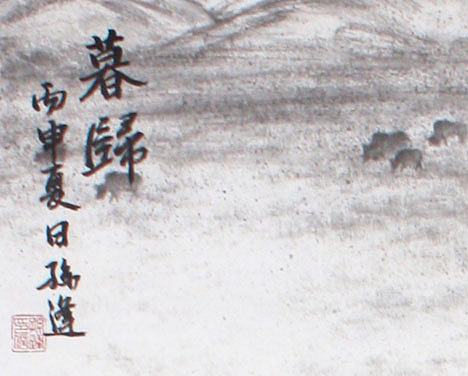 暮歸
丙申夏日孫逢